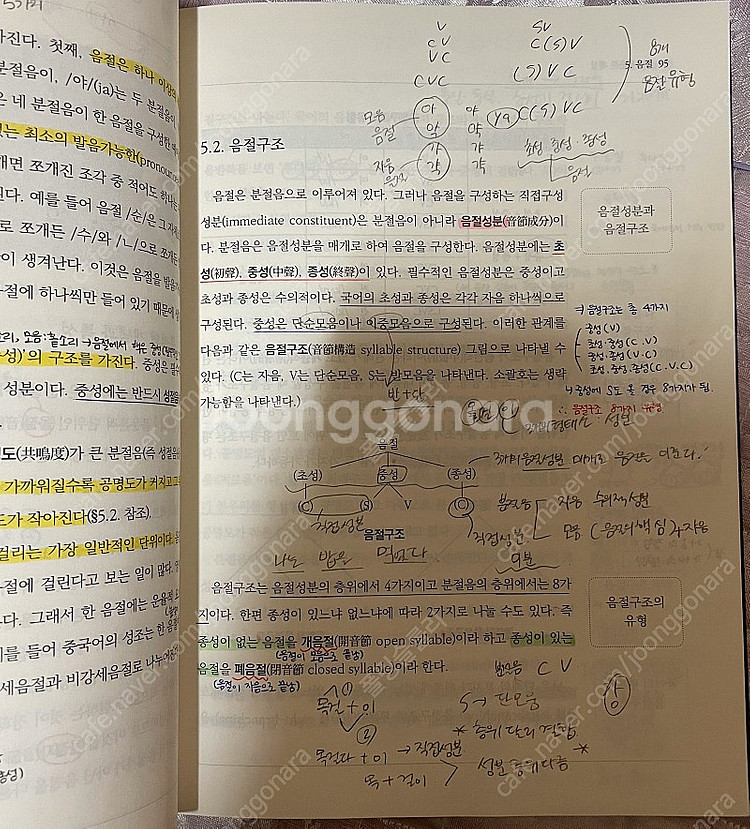 가진다. 첫째, 음절은 하나 이상의
분절음이, /야/(ja)는 두 분절음이
은 네 분절음이 한 음절을 구성한
있는 최소의 발음가능한(pronounce
개면 쪼개진 조각 중 적어도 하나는
진다. 예를 들어 음절 /순/은 그 자체
로 쪼개든 /수/와 /ㄴ/으로 쪼개든
이 생겨난다. 이것은 음절을 발음
절에 하나씩만 들어 있기 때문에
성)'의 구조를 가진다. 중성은
성분이다. 중성에는 반드시 성절음
도(共鳴度)가 큰 분절음(즉 성절음
가까워질수록 공명도가 커지고
도가 작아진다(§5.2. 참조).
걸리는 가장 일반적인 단위이다.
절에 걸린다고 보는 일이 많다.
다. 그래서 한 음절에는 운율적
를 들어 중국어의 성조는 한 음절
세음절과 비강세음절로 나누어
V SV
CV C(S)V
VC (S)VC
CVC C(S)VC
8개
음절유형
5. 음절 95
모음
음절
아 야
악 약
가 갸
각 갹
자음
음절
초성 중성 종성
음절
5.2. 음절구조
음절은 분절음으로 이루어져 있다. 그러나 음절을 구성하는 직접구성
성분(immediate constituent)은 분절음이 아니라 음절성분(音節成分)이
다. 분절음은 음절성분을 매개로 하여 음절을 구성한다. 음절성분에는 초
성(初聲), 중성(中聲), 종성(終聲)이 있다. 필수적인 음절성분은 중성이고
초성과 종성은 수의적이다. 국어의 초성과 종성은 각각 자음 하나씩으로
구성된다. 중성은 단순모음이나 이중모음으로 구성된다. 이러한 관계를
다음과 같은 음절구조(音節構造 syllable structure) 그림으로 나타낼 수
있다. (C는 자음, V는 단순모음, S는 반모음을 나타낸다. 소괄호는 생략
가능함을 나타낸다.)
음절성분과
음절구조
⇒ 음절구조는 총 4가지
중성(V)
초성·중성(C.V)
중성·종성(V.C)
초성.중성.종성(C.V.C)
↳ 중성에 S도 올 경우 8가지가 됨.
∴ 음절구조 8가지 유형
반+단
음절
(초성) 중성 (종성)
(C) (S) V (C)
직접성분
음절구조
직접성분
나는 밥을 먹었다.
분절음
자음
모음
음절구조는 음절성분의 층위에서 4가지이고 분절음의 층위에서는 8가
지이다. 한편 종성이 있느냐 없느냐에 따라 2가지로 나눌 수도 있다. 즉
종성이 없는 음절을 개음절(開音節 open syllable)이라 하고 종성이 있는
(음절이 모음으로 끝남)
음절을 폐음절(閉音節 closed syllable)이라 한다.
(음절이 자음으로 끝남)
음절구조의
유형
분절음 C V
S → 단모음
* 층위 달리 결합
성분 층위 다름 *
목걸+이
목걸다+이 → 직접성분
목+걸이
상
joonggonara
cafe.naver.com/joonggonara